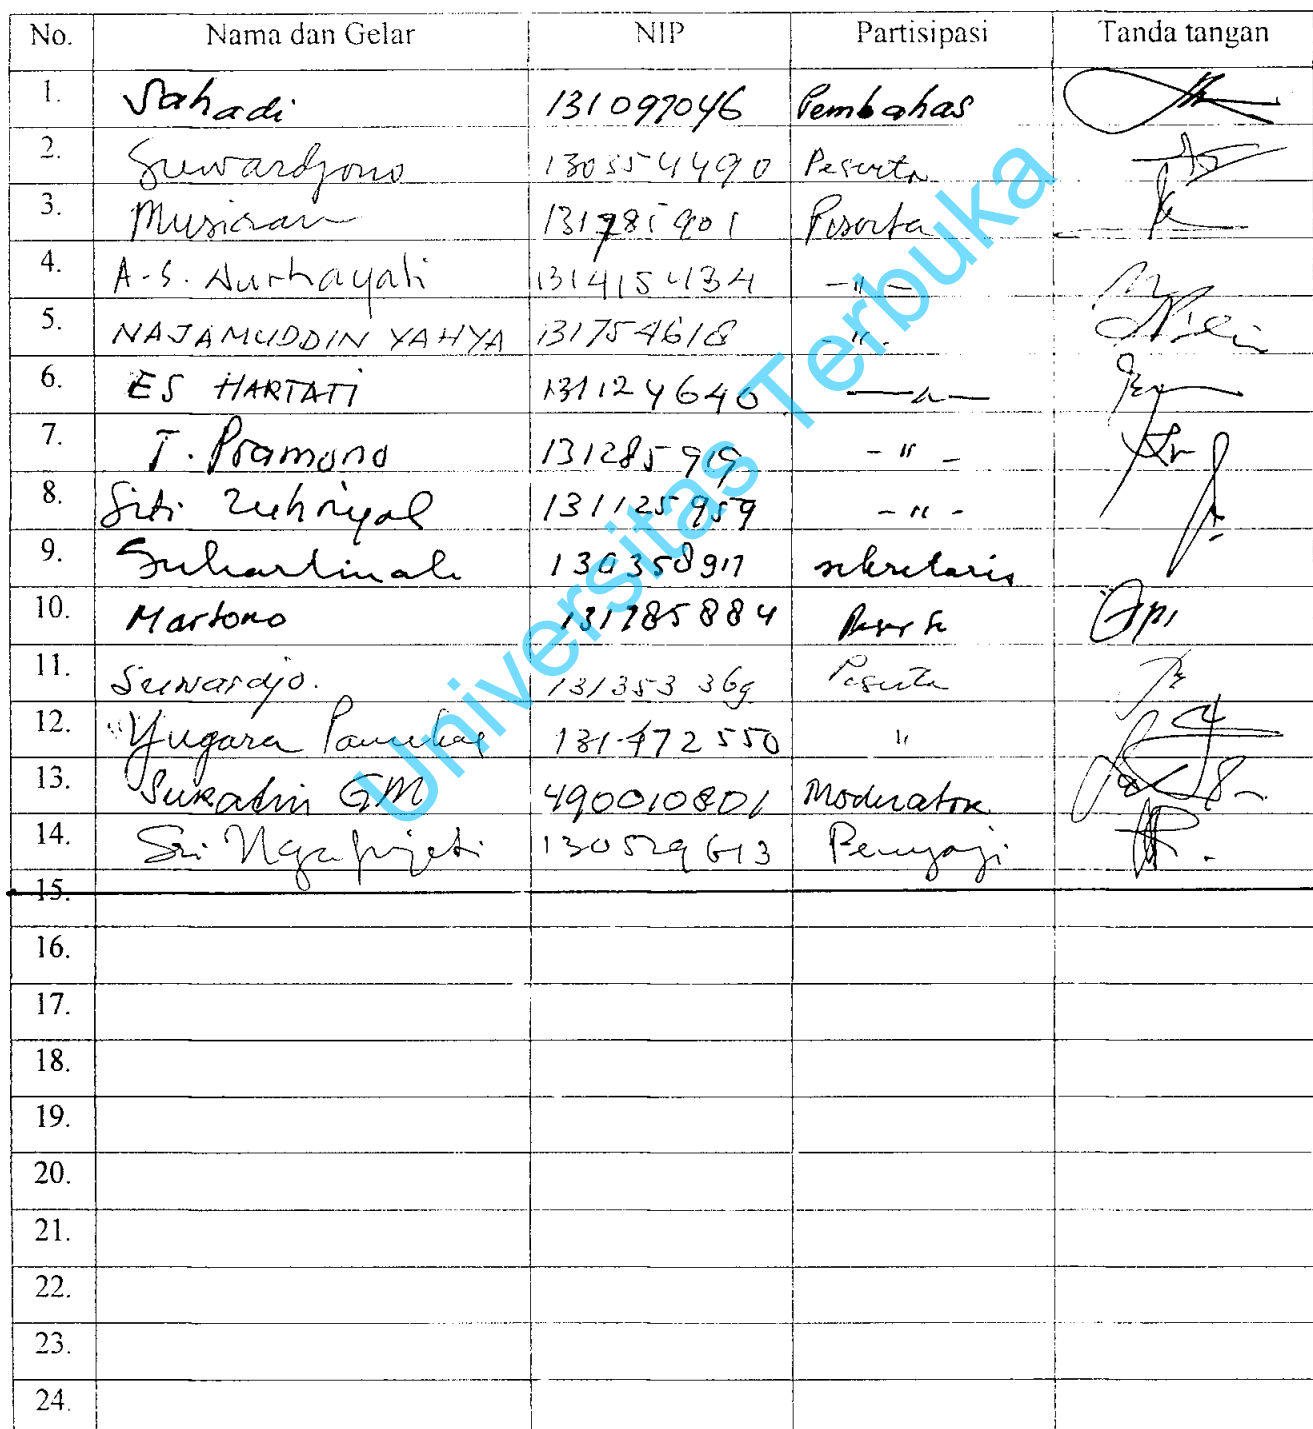 No. Nama dan Gelar NIP Partisipasi Tanda tangan
1. Sahadi 131097046 Pembahas
2. Suwardjono 130554490 Peserta
3. 131785901 Peserta
4. A.S. Nurhayati 131415434 -"-
5. NAJAMUDDIN YAHYA 131754618 -"-
6. ES HARTATI 131124640
7. T. Pramono 131285919 -"-
8. Siti 131125959 -"-
9. Suhartinah sekretaris
10. Martono 131785884
11. Suwardjo. 131353369 Peserta
12. Yugara 131472550 "
13. Sukadin GM 490010801 Moderator
14. Sri 130529613 Penyaji
15.
16.
17.
18.
19.
20.
21.
22.
23.
24.
Universitas Terbuka